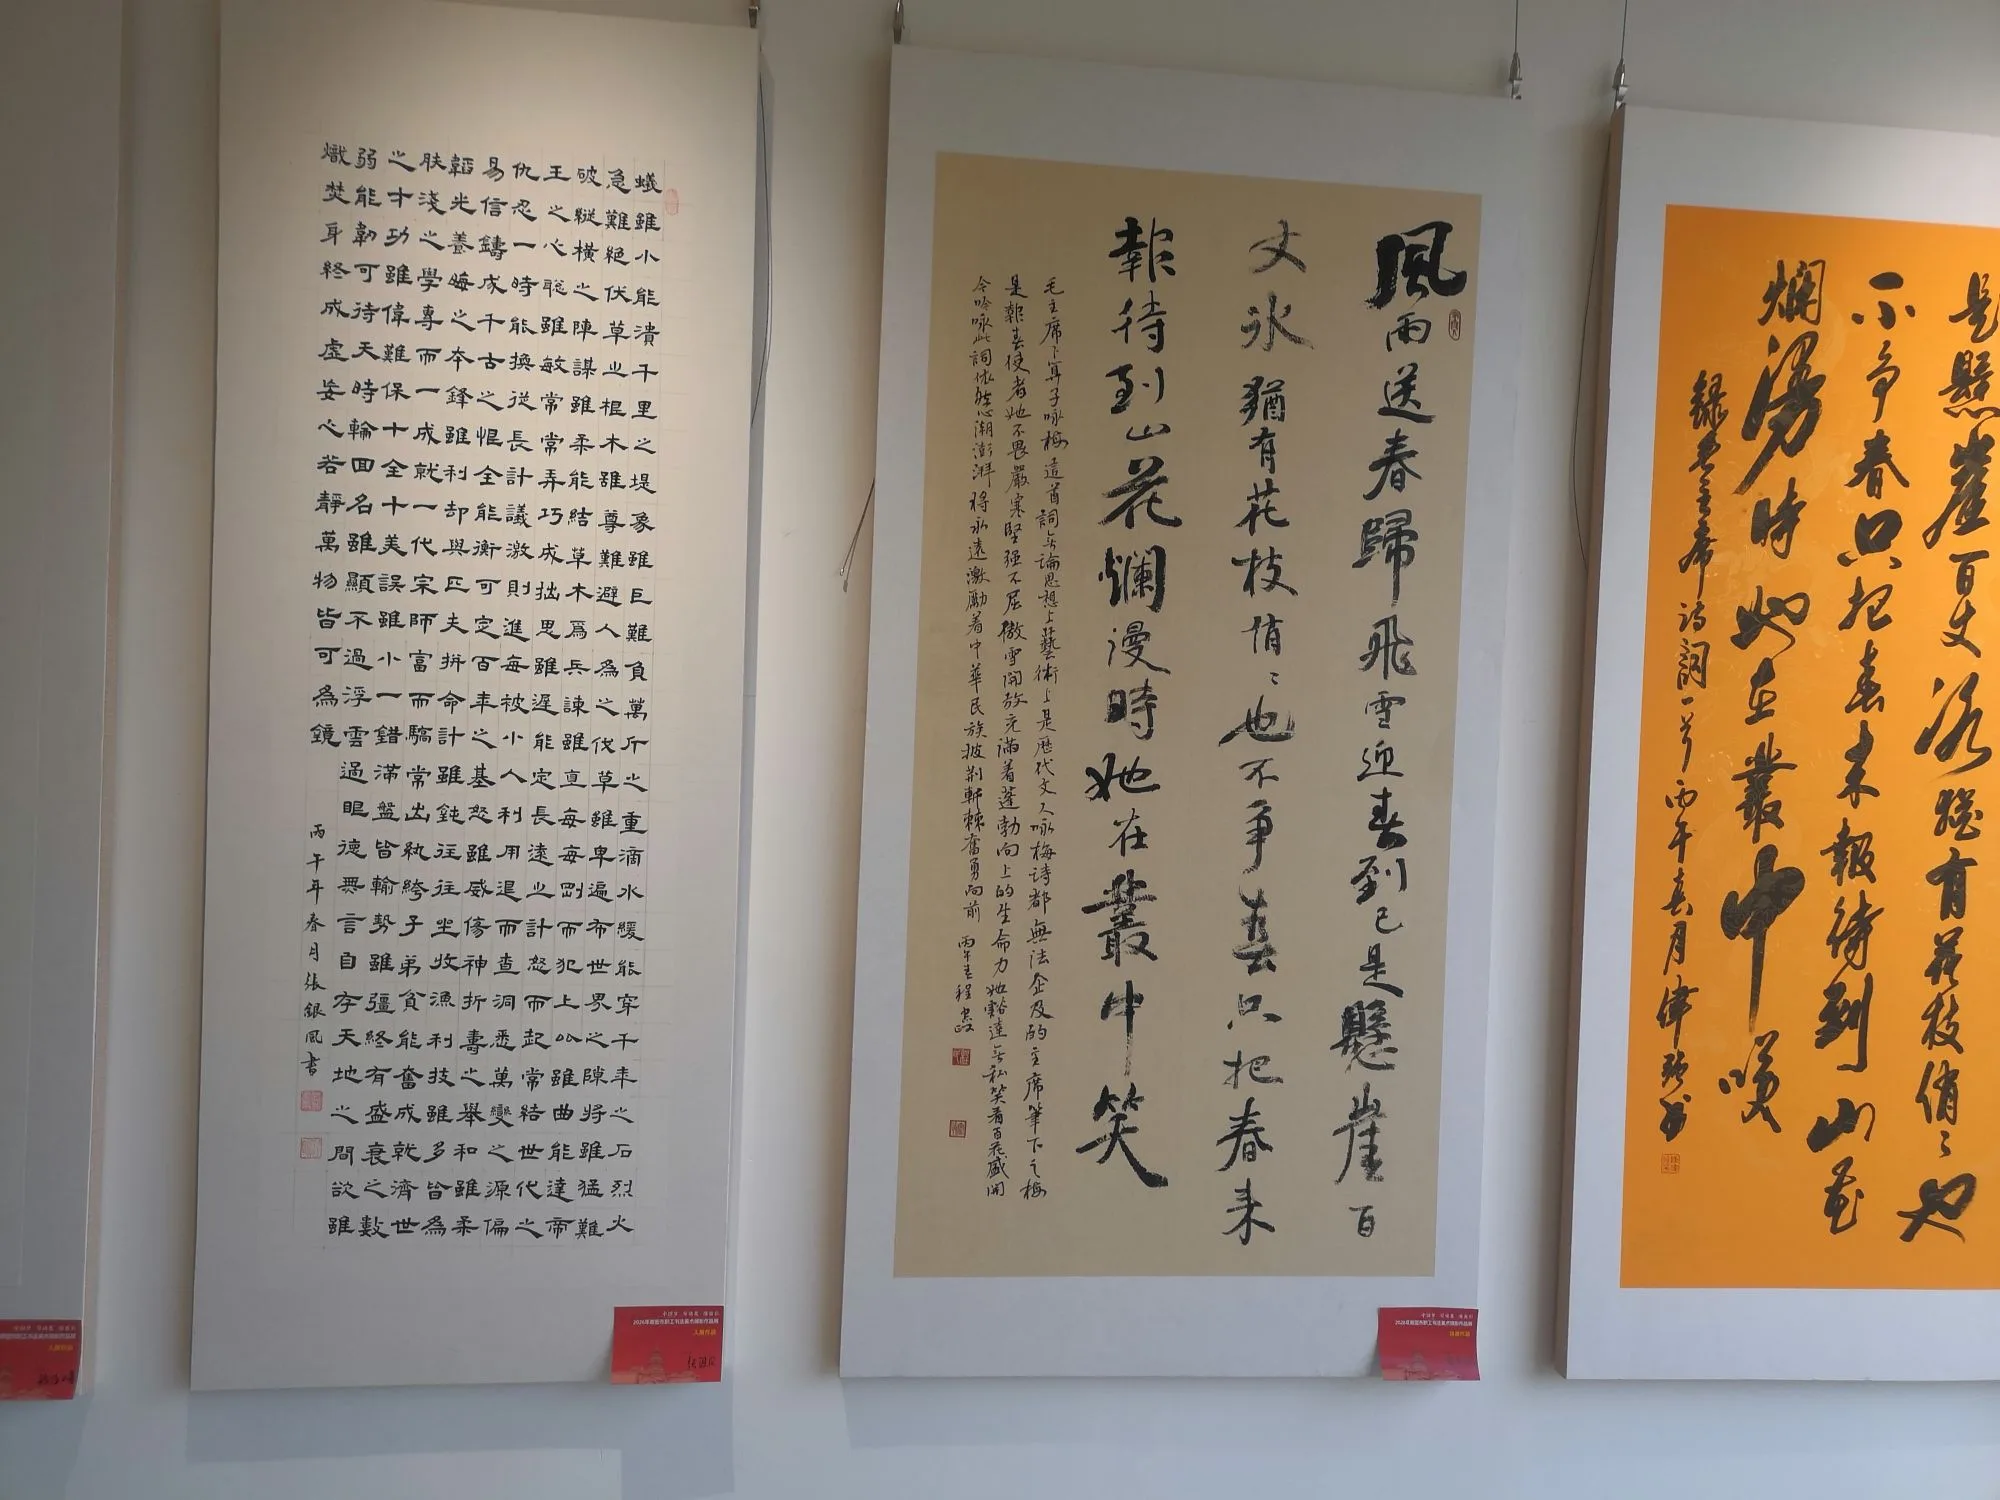 蟻雖小能潰千里之堤象雖巨難負萬斤之重滴水緩能穿千年之石烈火
急難絕伏草之根木雖尊難避人為之伐草雖卑遍布世界之隙將雖猛難
破縱橫之陣謀雖柔能結草木為兵諫雖直每每剛而犯上公雖曲能達帝
王之心聰雖敏常常弄巧成拙思雖遲能定長遠之計怒而起常結世代之
仇忍一時能換從長計議激則進每被小人利用退而查洞悉萬變之源偏
易信鑄成千古之恨全能衡可定百年之基怒雖威傷神折壽之舉和雖柔
韜光養晦之本鋒雖利却與匹夫拼命計雖鈍往往坐收漁利技雖多皆為
肤淺之學專而一成就一代宗師富而驕常出紈絝子弟貧能奮成就濟世
之才功雖偉難保十全十美誤雖小一錯滿盤皆輸勢雖彊終有盛衰之數
弱能韌可待天時輪回名雖顯不過浮雲過眼德無言自存天地之間欲雖
熾焚身終成虛妄心若靜萬物皆可為鏡
丙午年春月張銀風書
入展作品
風雨送春歸飛雪迎春到已是懸崖百
丈冰猶有花枝悄〻也不争春只把春来
報待到山花爛漫時她在叢中笑
毛主席卜算子咏梅這首詞无論思想上藝術上是歷代文人咏梅诗都無法企及的主席筆下之梅
是報春使者她不畏嚴寒堅强不屈傲雪開放充滿着蓬勃向上的生命力她豁達无私笑看百花盛開
今吟咏此詞依然心潮澎湃將永遠激勵着中華民族披荆斬棘奮勇向前 丙午春程
是懸崖百丈冰猶有花枝俏〻也
不争春只把春来報待到山花
爛漫時她在叢中笑
錄毛主席詩詞一首丙午春月